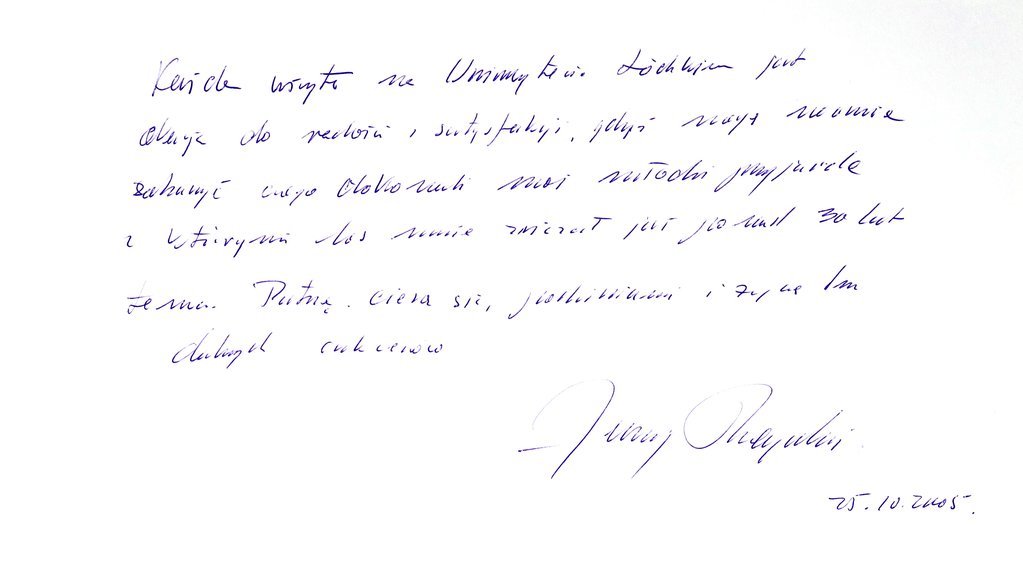 Każda wizyta na Uniwersytecie Łódzkim jest
okazją do radości i satysfakcji, gdyż mogę
zobaczyć czego dokonali moi młodzi przyjaciele
z którymi los mnie związał już ponad 30 lat
temu. Patrzę, cieszę się, podziwiam i życzę Im
dalszych sukcesów
Jerzy
25.10.2005.